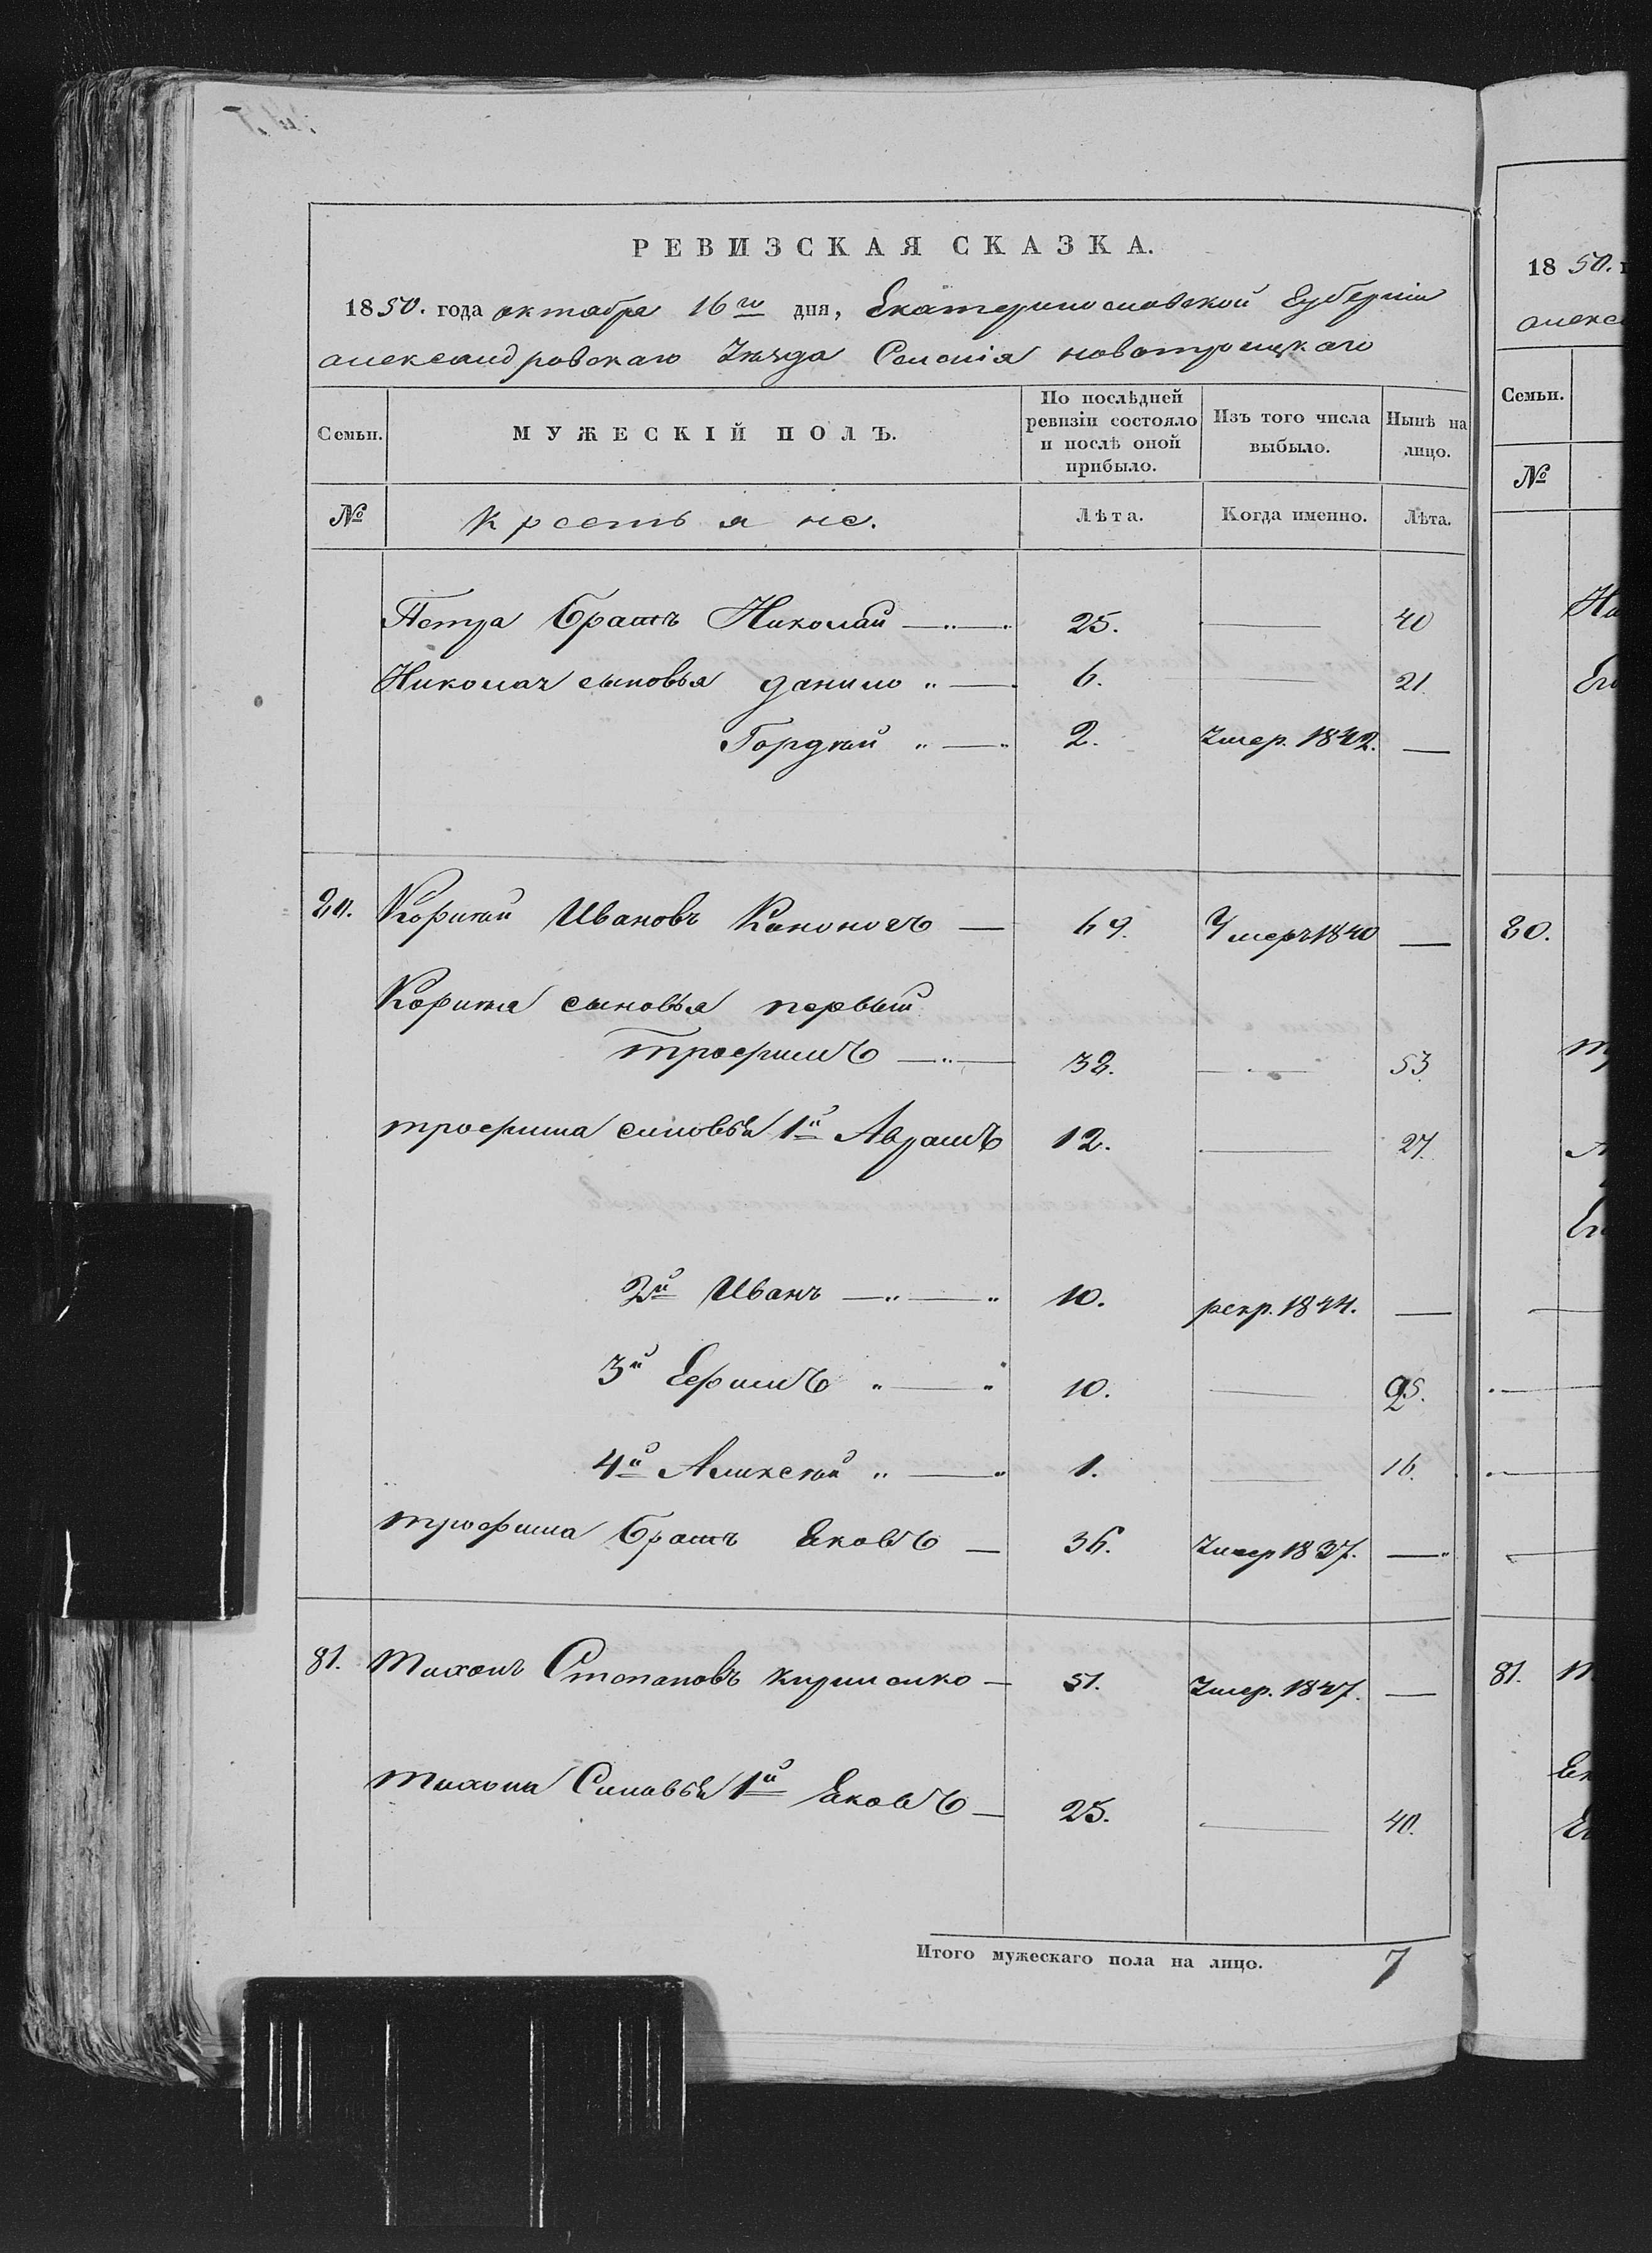 РЕВИЗСКАЯ СКАЗКА.
1850. года октабра 16го дня, Екатеринославской Губерніи
александровскаго Уезда Селенія новотроецкаго
Семьи. МУЖЕСКІЙ ПОЛЪ. По послѣдней ревизіи состояло и послѣ оной прибыло. Изъ того числа выбыло. Нынѣ на лицо.
№ крестьяне. Лѣта. Когда именно. Лѣта.
Петра братъ Николай 25. 40
Николая сыновья данило 6. 21.
Гордѣй 2. Умер. 1842.
80. Корнѣй Ивановъ 69. Умеръ 1840
Корнѣя сыновья первый
трофимъ 38. 53.
трофима синовья 1й Аврамъ 12. 27.
2й Иванъ 10. рекр. 1844.
3й Ефимъ 10. 25.
4й Аликсѣй 1. 16.
трофима братъ Яковъ 36. Умер 1837.
81. Тихонъ Степановъ кириленко 51. Умер. 1847.
Тихона Синовья 1й Яковъ 25. 40.
Итого мужескаго пола на лицо. 7
18 50.
алекс
Семьи.
№
80.
81.